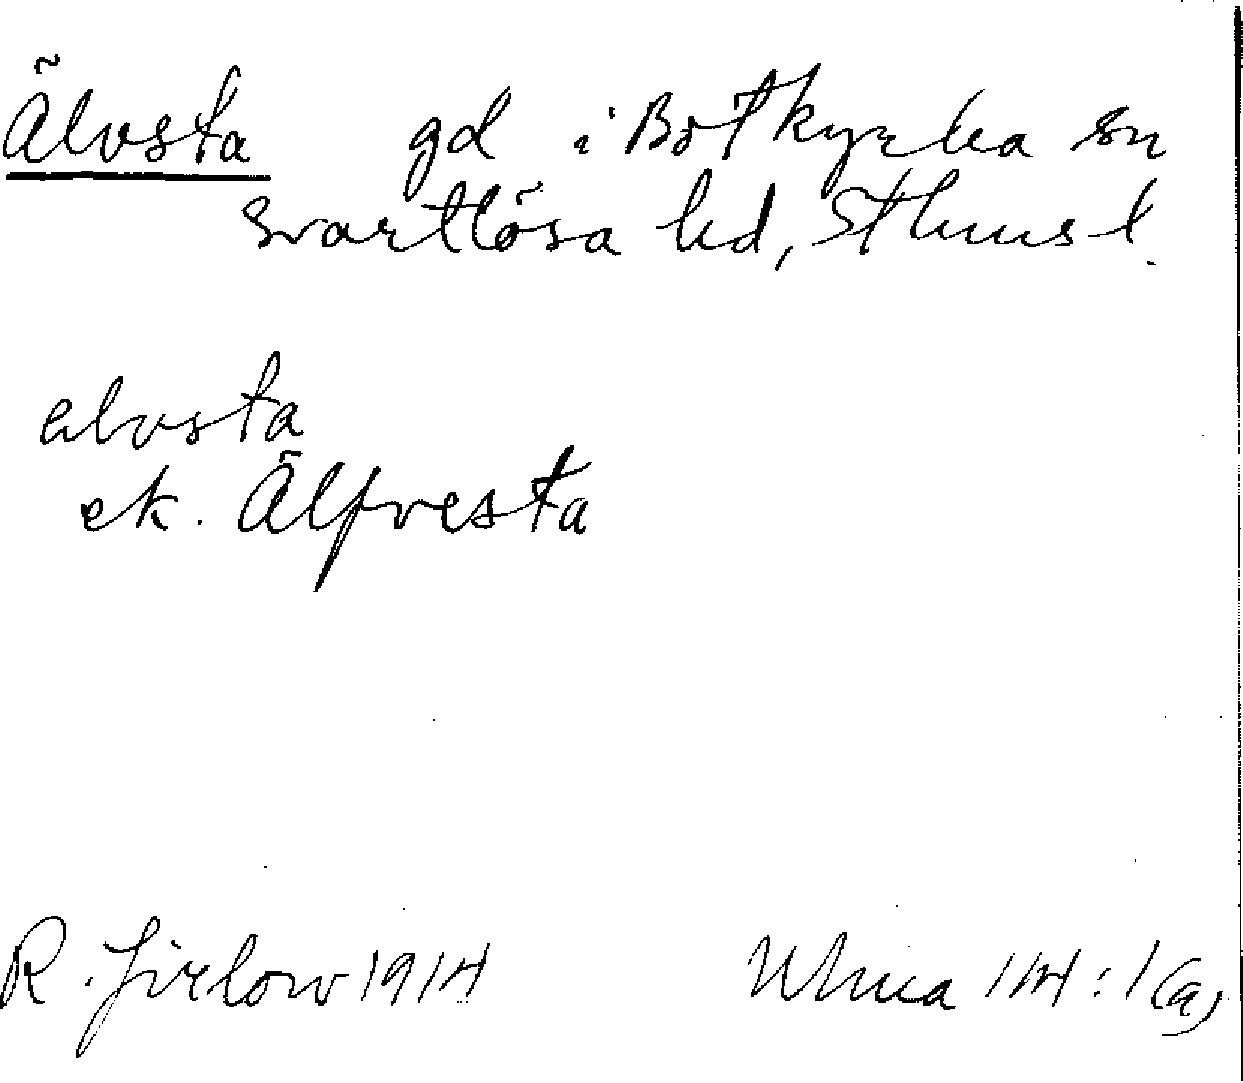 Älvsta gd i Botkyrka sn
Svartlösa hd, Sthms l.
elvsta
ek. Älfvesta
R. Jirlow 1914